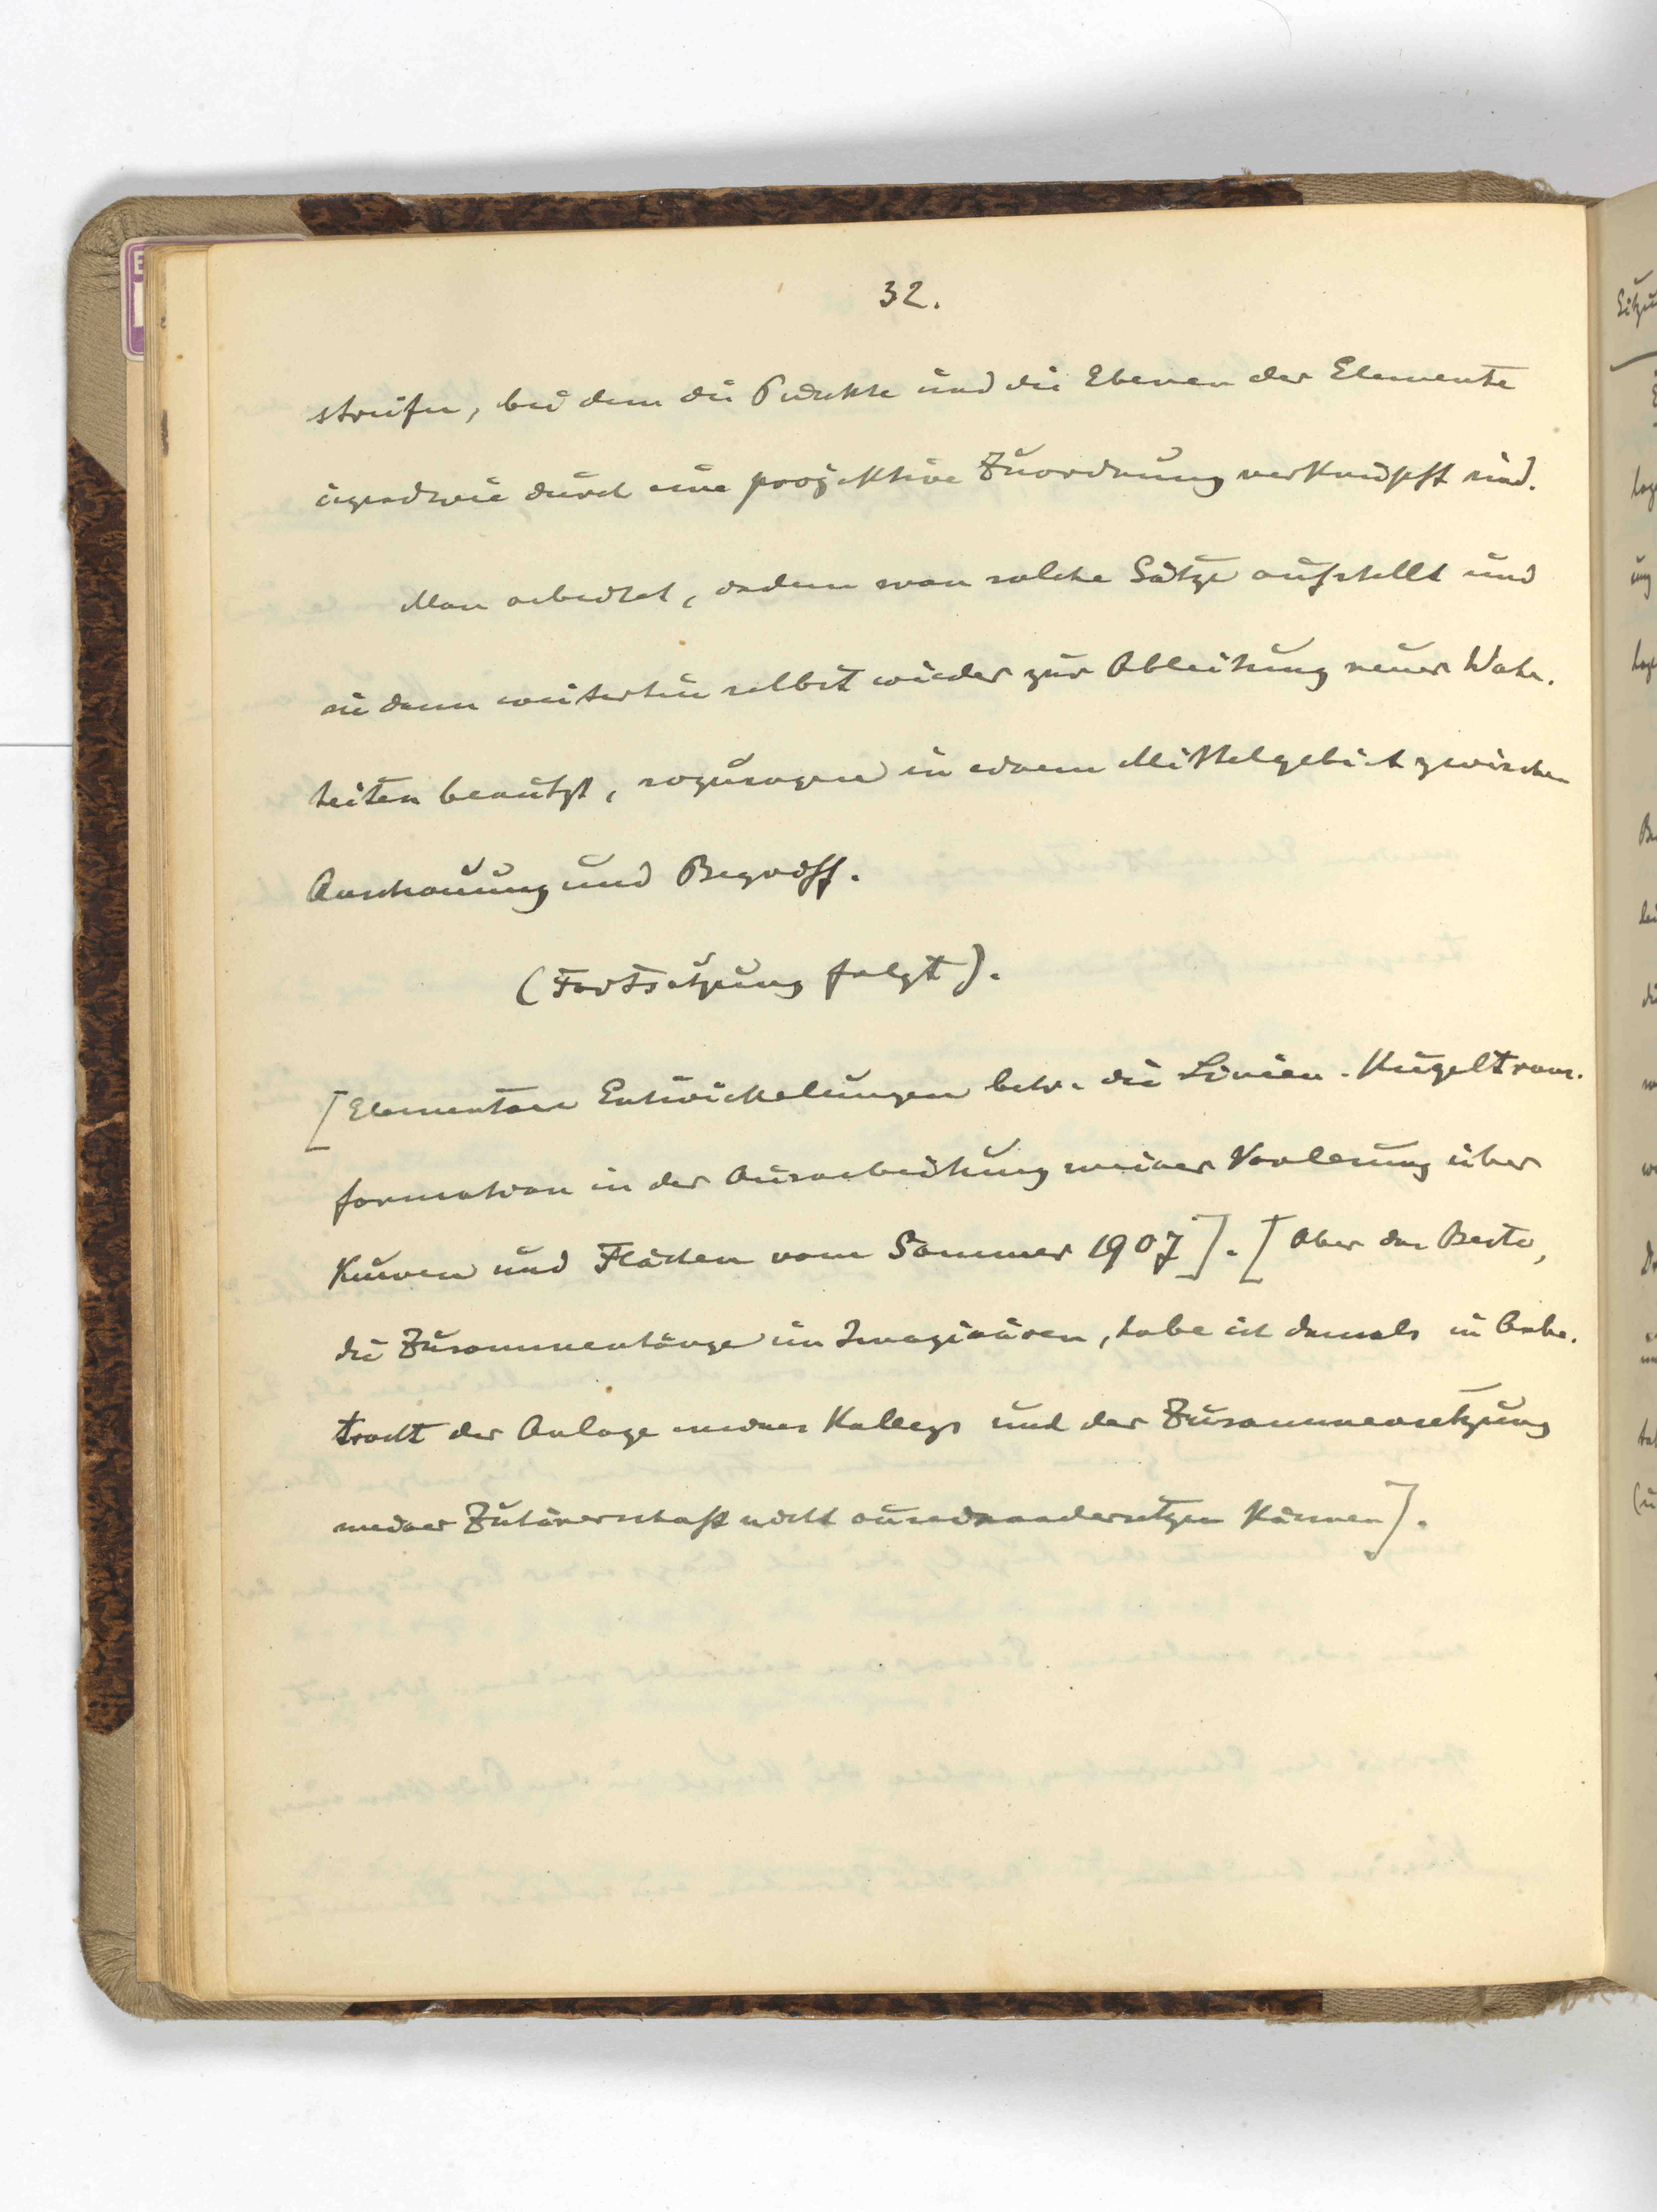 32.
streifen, bei dem die Punkte und die Ebenen der Elemente
irgendwie durch eine projektive Zuordnung verknüpft sind.
Man arbeitet, indem man solche Sätze aufstellt und
sie dann weiterhin selbst wieder zur Ableitung neuer Wahr-
heiten benutzt, sozusagen in einem Mittelgebiet zwischen
Anschauung und Begriff.
(Fortsetzung folgt).
[Elementare Entwickelungen betr. die Linien-Kugeltrans-
formation in der Ausarbeitung meiner Vorlesung über
Kurven und Flächen vom Sommer 1907]. [Aber das Beste,
die Zusammenhänge im Imaginären, habe ich damals in Anbe-
tracht der Anlage meines Kollegs und der Zusammensetzung
meiner Zuhörerschaft nicht auseinandersetzen können].